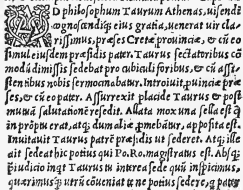 D philosophum Taurum Athenas, uisendi
cognoscendiq; eius gratia, venerat uir cla-
rissimus, præses Cretæ prouinciæ, & cū eo
simul eiusdem præsidis pater. Taurus sectatoribus cō
modū dimissis sedebat pro cubiculi foribus, & cū assi-
stentibus nobis sermocinabatur. Introiuit, prouinciæ præ-
ses, & cū eo pater. Assurrexit placide Taurus & post
mutuā salutationē resedit. Allata mox una sella est q̄
in prōptu erat, atq; dum aliæ prōmebātur, apposita est.
Inuitauit Taurus patrē præsidis ut sederet. Atq; ille
ait sedeat hic potius qui Po. Ro. magistratus est. Absq;
præiudicio inqt Taurus tu interea sede quā inspicimus,
quærimusq; utrū cōueniat te ne potius sedere